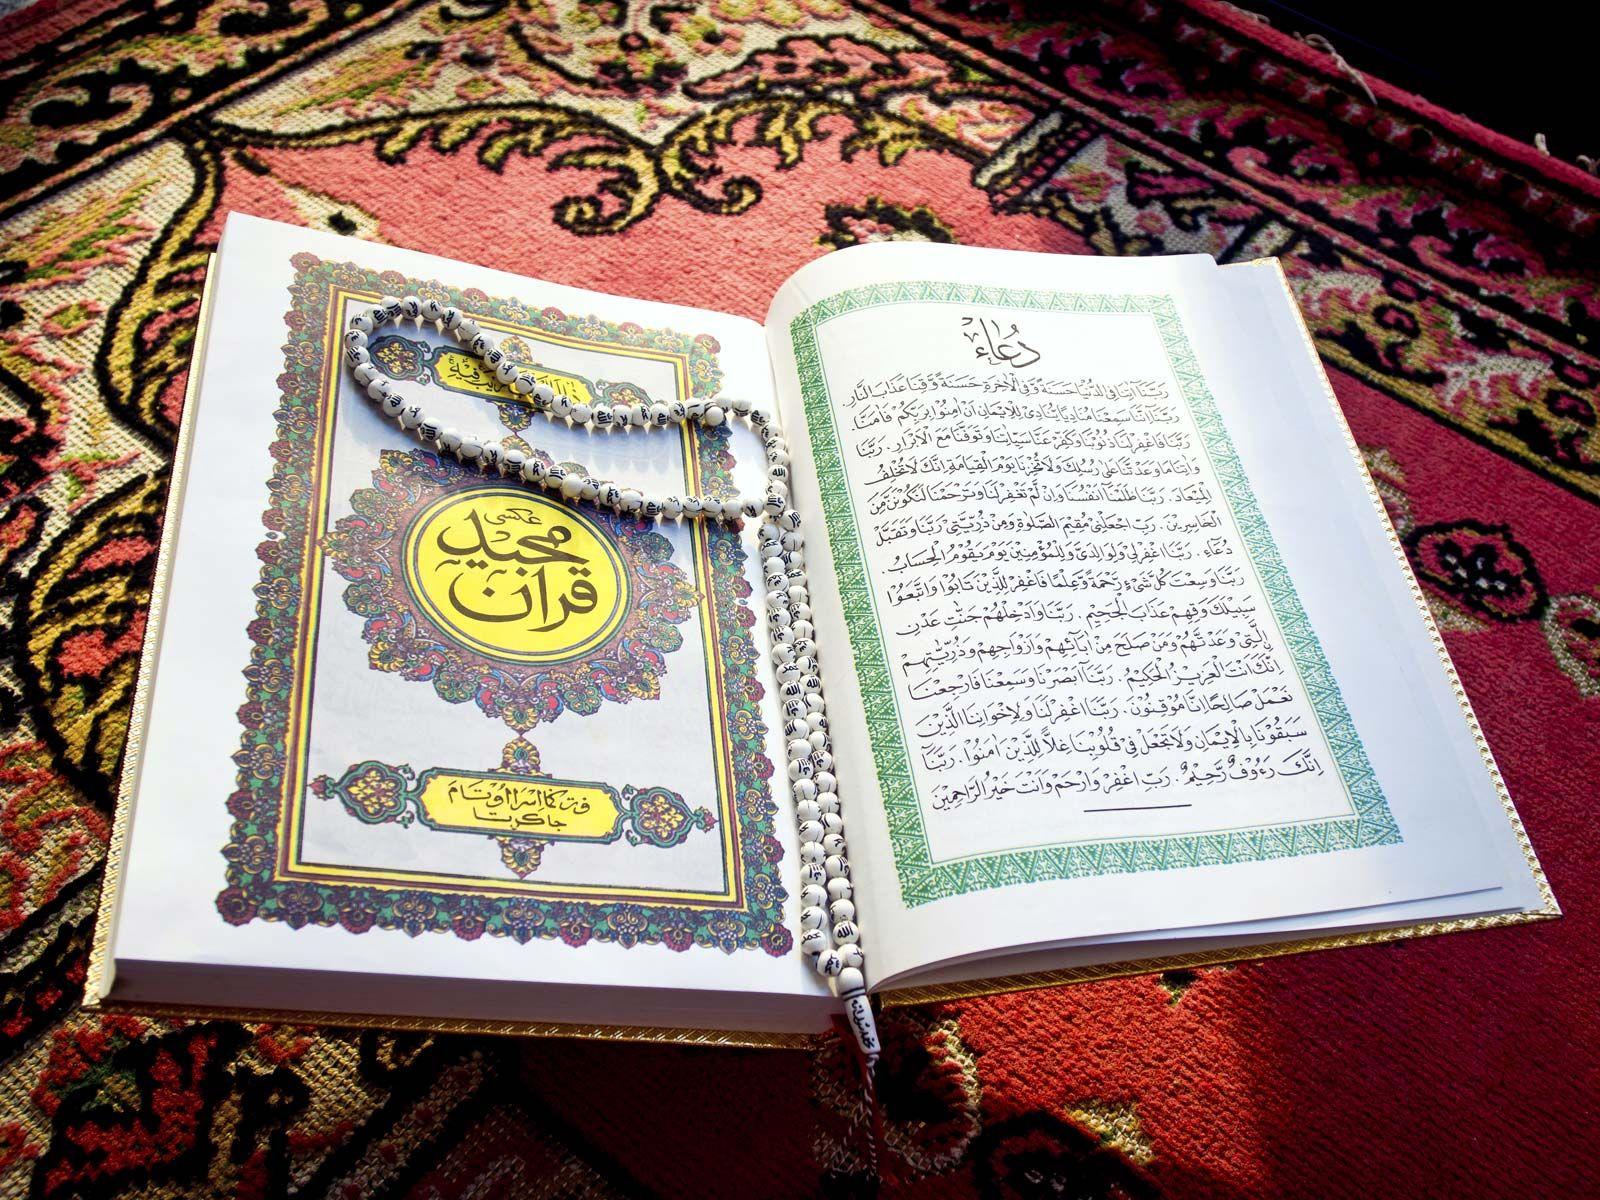 دُعَاء
رَبَّنَآ اٰتِنَا فِى الدُّنْيَا حَسَنَةً وَّفِى الْاٰخِرَةِ حَسَنَةً وَّقِنَا عَذَابَ النَّارِ.
رَبَّنَآ اِنَّنَا سَمِعْنَا مُنَادِيًا يُّنَادِىْ لِلْاِيْمَانِ اَنْ اٰمِنُوْا بِرَبِّكُمْ فَاٰمَنَّا
رَبَّنَا فَاغْفِرْ لَنَا ذُنُوْبَنَا وَكَفِّرْ عَنَّا سَيِّاٰتِنَا وَتَوَفَّنَا مَعَ الْاَبْرَارِ. رَبَّنَا
وَاٰتِنَا مَا وَعَدْتَّنَا عَلٰى رُسُلِكَ وَلَا تُخْزِنَا يَوْمَ الْقِيَامَةِ اِنَّكَ لَا تُخْلِفُ
الْمِيْعَادَ. رَبَّنَا ظَلَمْنَآ اَنْفُسَنَا وَاِنْ لَّمْ تَغْفِرْ لَنَا وَتَرْحَمْنَا لَنَكُوْنَنَّ مِنَ
الْخَاسِرِيْنَ. رَبِّ اجْعَلْنِىْ مُقِيْمَ الصَّلٰوةِ وَمِنْ ذُرِّيَّتِىْ رَبَّنَا وَتَقَبَّلْ
دُعَآءِ. رَبَّنَا اغْفِرْ لِىْ وَلِوَالِدَىَّ وَلِلْمُؤْمِنِيْنَ يَوْمَ يَقُوْمُ الْحِسَابُ.
رَبَّنَا وَسِعْتَ كُلَّ شَىْءٍ رَّحْمَةً وَّعِلْمًا فَاغْفِرْ لِلَّذِيْنَ تَابُوْا وَاتَّبَعُوْا
سَبِيْلَكَ وَقِهِمْ عَذَابَ الْجَحِيْمِ. رَبَّنَا وَاَدْخِلْهُمْ جَنّٰتِ عَدْنِ
الَّتِىْ وَعَدْتَّهُمْ وَمَنْ صَلَحَ مِنْ اٰبَآئِهِمْ وَاَزْوَاجِهِمْ وَذُرِّيّٰتِهِمْ
اِنَّكَ اَنْتَ الْعَزِيْزُ الْحَكِيْمُ. رَبَّنَآ اَبْصَرْنَا وَسَمِعْنَا فَارْجِعْنَا
نَعْمَلْ صَالِحًا اِنَّا مُوْقِنُوْنَ. رَبَّنَا اغْفِرْ لَنَا وَلِاِخْوَانِنَا الَّذِيْنَ
سَبَقُوْنَا بِالْاِيْمَانِ وَلَا تَجْعَلْ فِىْ قُلُوْبِنَا غِلًّا لِّلَّذِيْنَ اٰمَنُوْا. رَبَّنَآ
اِنَّكَ رَءُوْفٌ رَّحِيْمٌ. رَبِّ اغْفِرْ وَارْحَمْ وَاَنْتَ خَيْرُ الرَّاحِمِيْنَ
عكسى
مجيد
قرآن
جاكرتا
الله
محمد